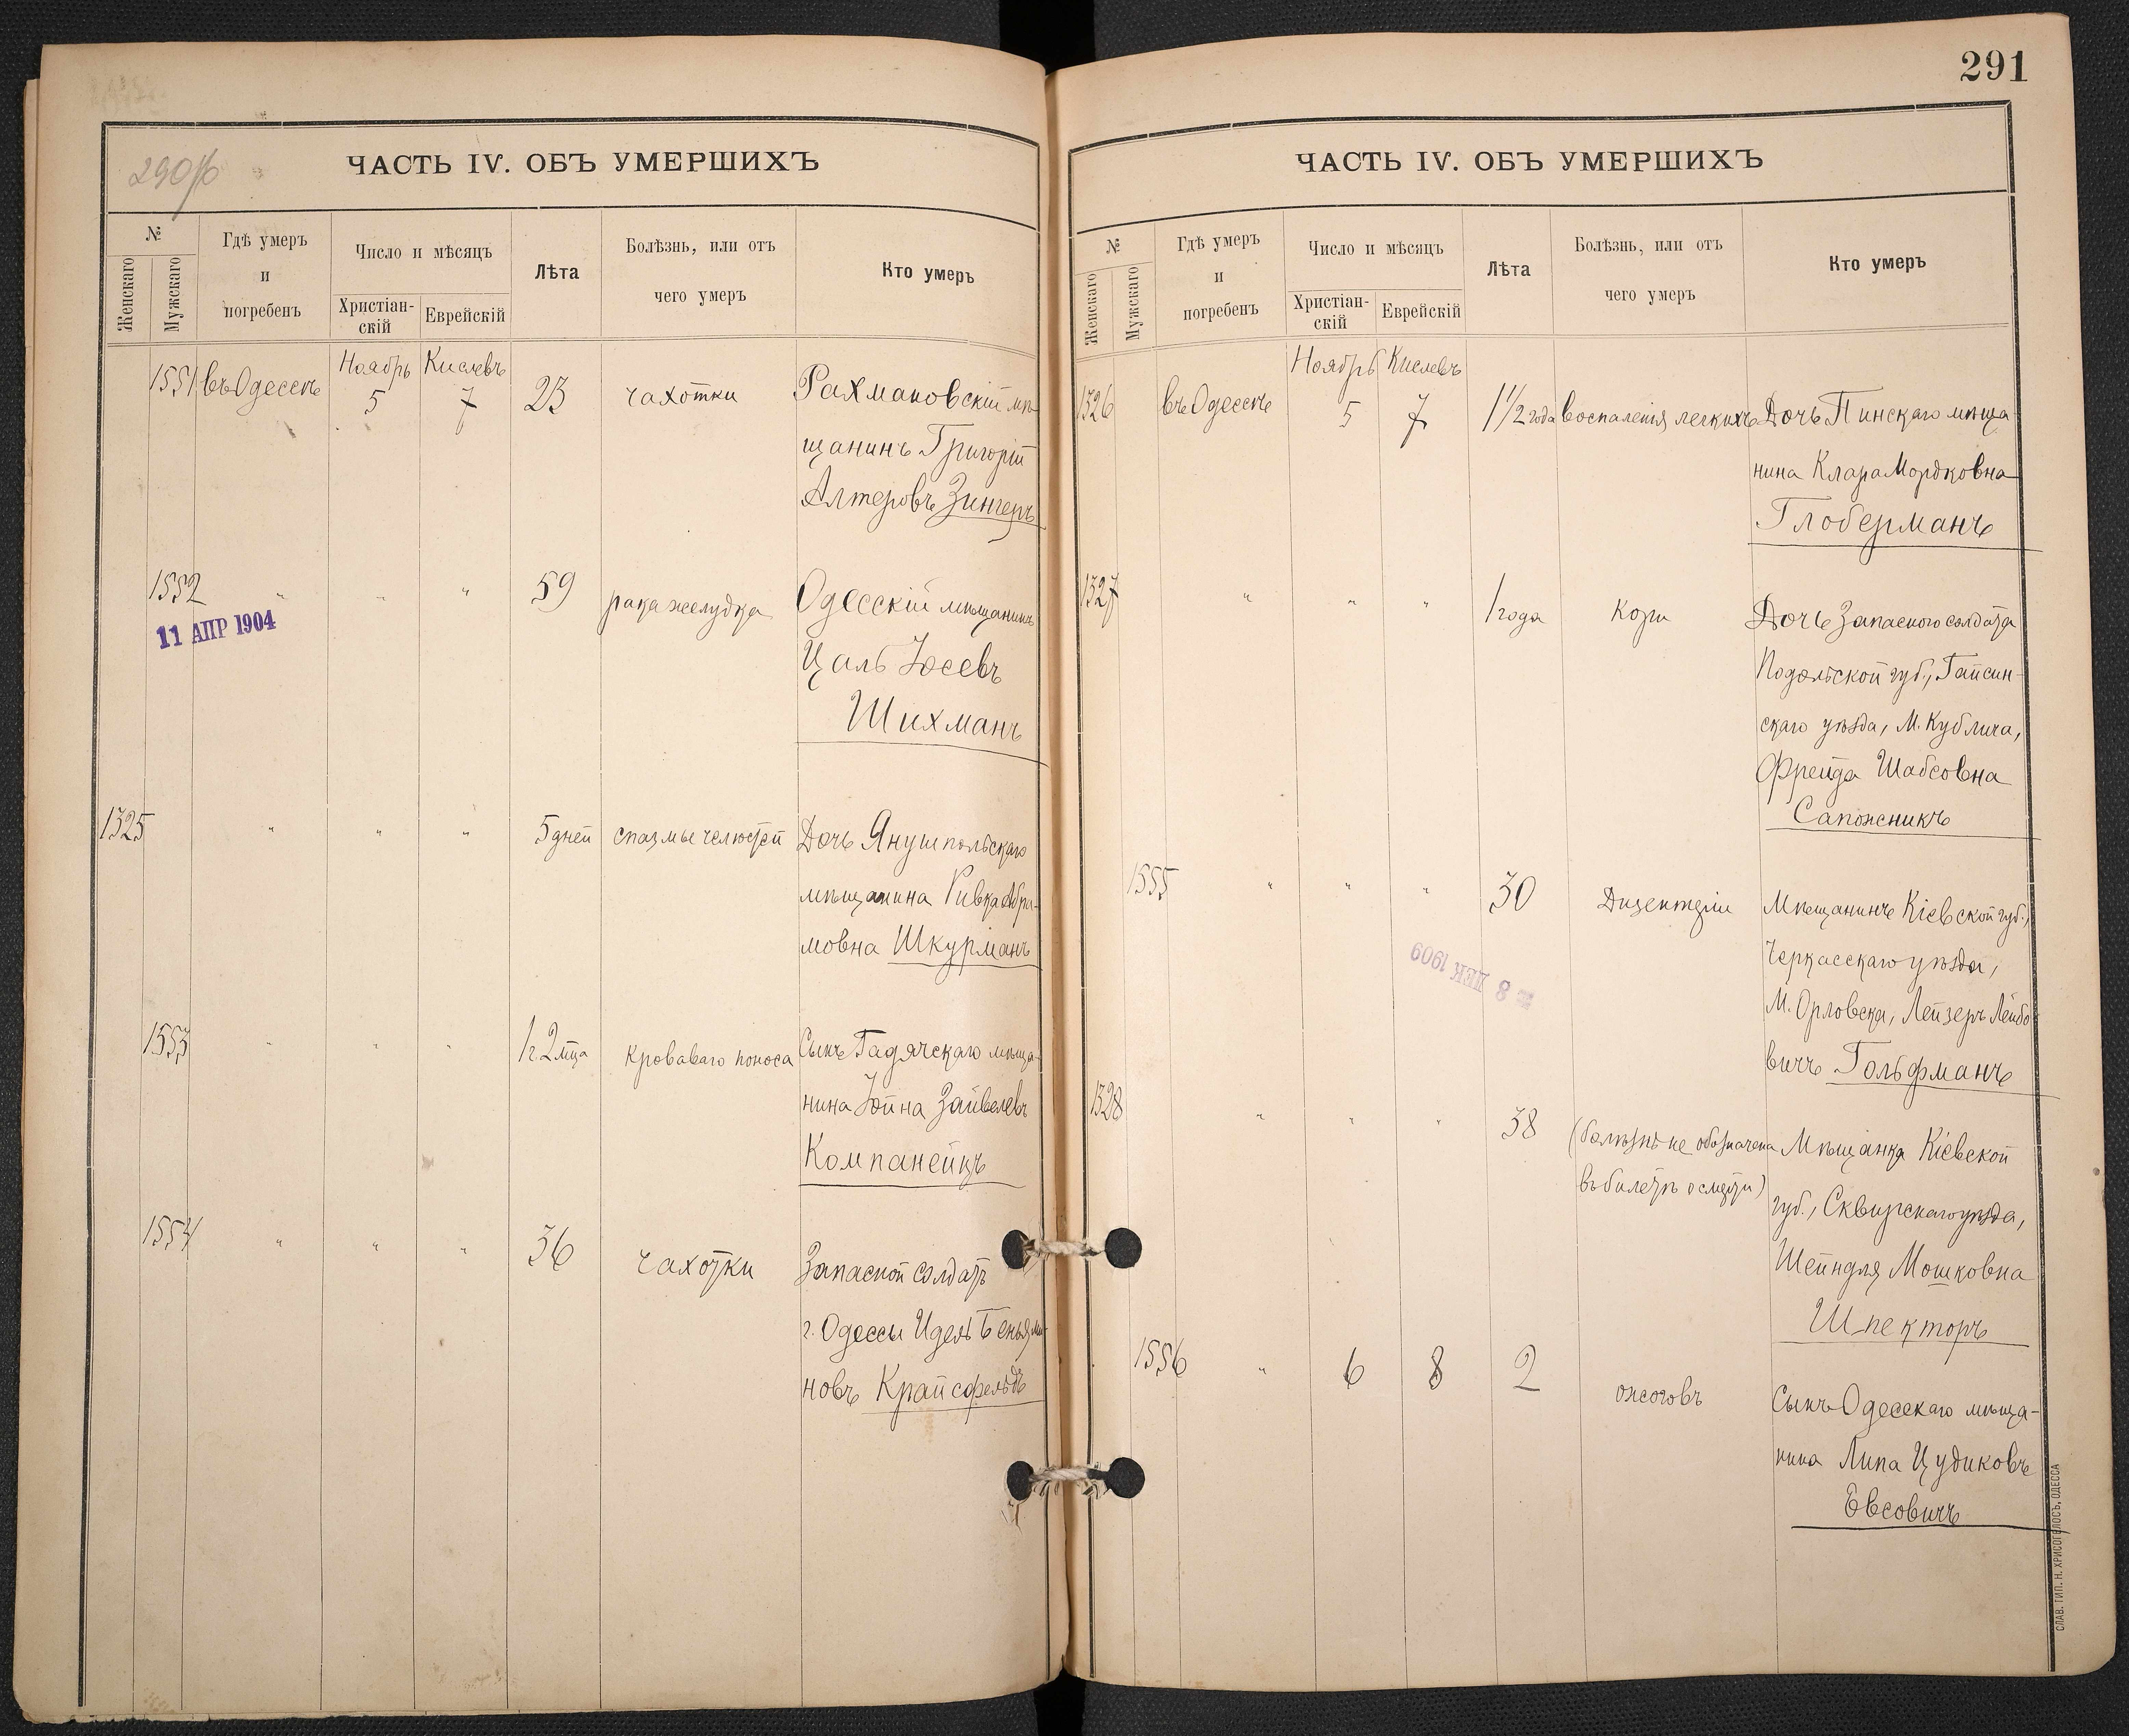 290об
ЧАСТЬ IV. ОБЪ УМЕРШИХЪ
№
Женскаго
Мужскаго
Гдѣ умеръ
и
погребенъ
Число и мѣсяцъ
Христіан-
скій
Еврейскій
Лѣта
Болѣзнь, или отъ
чего умеръ
Кто умеръ
Ноябрь Кислевъ
1551 въ Одессѣ 5 7 23 чахотки Рахмановскій мѣ-
щанинъ Григорій
Алтеровъ Зингеръ
1552 " " " 59 рака желудка Одесскій мѣщанинъ
11 АПР 1904
Цаль Іосевъ
Шихманъ
1325 " " " 5 дней спазмы челюстей Дочь Янушпольскаго
мѣщанина Ривка Абра-
мовна Шкурманъ
1553 " " " 1 г. 2 мца кроваваго поноса Сынъ Гадячскаго мѣща-
нина Іойна Зайвелевъ
Компанейцъ
1554 " " " 36 чахотки Запасной солдатъ
г. Одессы Идель Беньями-
новъ Крайсфельдъ
291
ЧАСТЬ IV. ОБЪ УМЕРШИХЪ
№
Женскаго
Мужскаго
Гдѣ умеръ
и
погребенъ
Число и мѣсяцъ
Христіан-
скій
Еврейскій
Лѣта
Болѣзнь, или отъ
чего умеръ
Кто умеръ
Ноябрь Кислевъ
1326 въ Одессѣ 5 7 1 1/2 года воспаленія легкихъ Дочь Пинскаго мѣща-
нина Клара Мордковна
Глоберманъ
1327 " " " 1 года Кори Дочь Запасного солдата
Подольской губ., Гайсин-
скаго уѣзда, М. Кублича,
Фрейда Шабсовна
Сапожникъ
1555 " " " 30 Дизентеріи Мѣщанинъ Кіевской губ.,
Черкасскаго уѣзда,
8 ДЕК 1909
М. Орловска, Лейзеръ Лейбо-
вичъ Гольфманъ
1328 " " " 38 (болѣзнь не обозначена Мѣщанка Кіевской
въ билетѣ о смерти)
губ., Сквирскаго уѣзда,
Шейндля Мошковна
Шпекторъ
1556 " 6 8 2 ожоговъ Сынъ Одесскаго мѣща-
нина Липа Цудиковъ
Евсовичъ
СЛАВ. ТИП. Н. ХРИСОГЕЛОСЪ, ОДЕССА